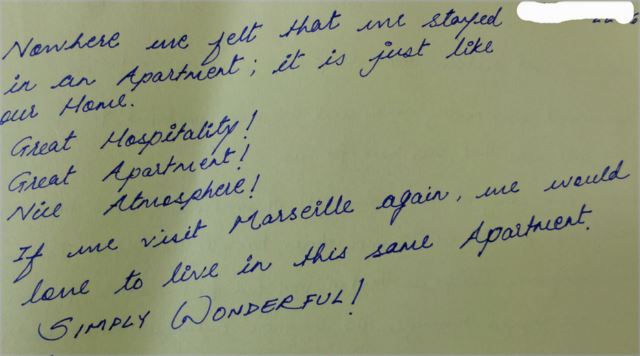 Nowhere we felt that we stayed
in an Apartment; it is just like
our Home.
Great Hospitality!
Great Apartment!
Nice Atmosphere!
If we visit Marseille again, we would
love to live in this same Apartment.
SIMPLY WONDERFUL!